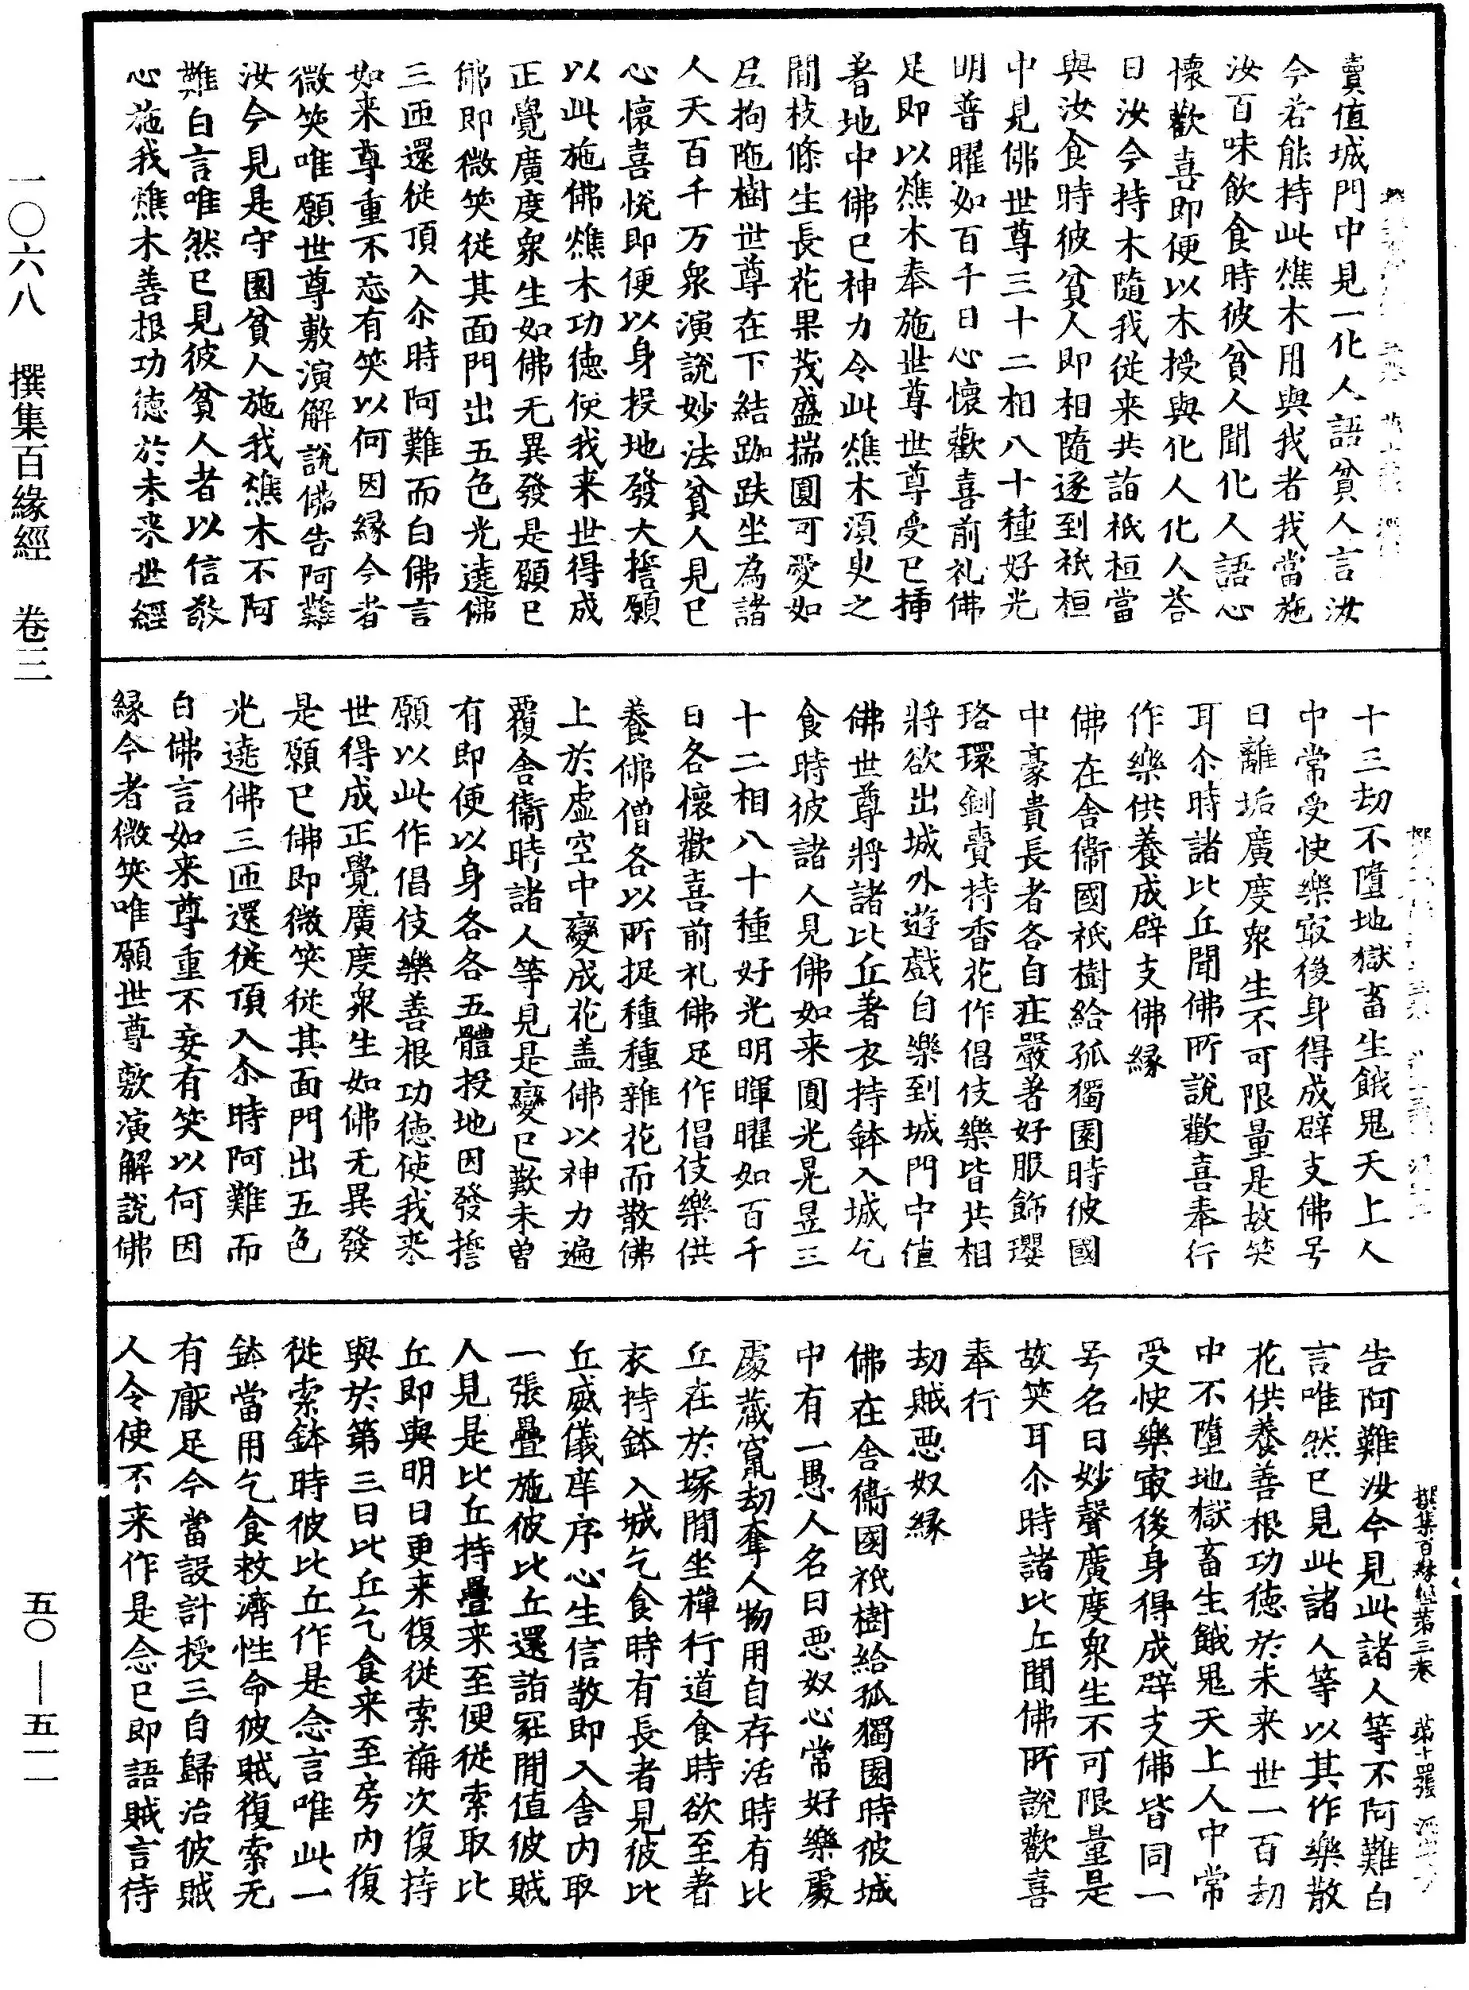 賣值城門中見一化人語貧人言汝
今若能持此燋木用與我者我當施
汝百味飲食時彼貧人聞化人語心
懷歡喜即便以木授與化人化人荅
曰汝今持木隨我從来共詣祇桓當
與汝食時彼貧人即相隨逐到祇桓
中見佛世尊三十二相八十種好光
明普曜如百千日心懷歡喜前礼佛
足即以燋木奉施世尊世尊受已插
著地中佛已神力令此燋木須臾之
間枝條生長花果茂盛揣圓可愛如
尼拘陁樹世尊在下結跏趺坐為諸
人天百千万衆演說妙法貧人見已
心懷喜悅即便以身投地發大誓願
以此施佛燋木功德使我来世得成
正覺廣度衆生如佛无異發是願已
佛即微笑從其面門出五色光遶佛
三迊還從頂入尒時阿難而白佛言
如来尊重不忘有笑以何因緣今者
微笑唯願世尊敷演解說佛告阿難
汝今見是守園貧人施我燋木不阿
難白言唯然已見彼貧人者以信敬
心施我燋木善根功德於未来世經
十三劫不墮地獄畜生餓鬼天上人
中常受快樂㝡後身得成辟支佛号
曰離垢廣度衆生不可限量是故笑
耳尒時諸比丘聞佛所說歡喜奉行
作樂供養成辟支佛緣
佛在舍衞國祇樹給孤獨園時彼國
中豪貴長者各自庄嚴著好服飾瓔
珞環釧賷持香花作倡伎樂皆共相
將欲出城外遊戲自樂到城門中值
佛世尊將諸比丘著衣持鉢入城乞
食時彼諸人見佛如来圓光晃昱三
十二相八十種好光明暉曜如百千
日各懷歡喜前礼佛足作倡伎樂供
養佛僧各以所捉種種雜花而散佛
上於虛空中變成花盖佛以神力遍
覆舍衞時諸人等見是變已歎未曾
有即便以身各各五體投地因發誓
願以此作倡伎樂善根功德使我来
世得成正覺廣度衆生如佛无異發
是願已佛即微笑從其面門出五色
光遶佛三迊還從頂入尒時阿難而
白佛言如来尊重不妄有笑以何因
緣今者微笑唯願世尊敷演解說佛
告阿難汝今見此諸人等不阿難白
言唯然已見此諸人等以其作樂散
花供養善根功德於未来世一百劫
中不墮地獄畜生餓鬼天上人中常
受快樂㝡後身得成辟支佛皆同一
号名曰妙聲廣度衆生不可限量是
故笑耳尒時諸比丘聞佛所說歡喜
奉行
劫賊惡奴緣
佛在舍衞國祇樹給孤獨園時彼城
中有一愚人名曰惡奴心常好樂處
處藏竄劫奪人物用自存活時有比
丘在於塚間坐禪行道食時欲至著
衣持鉢入城乞食時有長者見彼比
丘威儀庠序心生信敬即入舍內取
一張疊施彼比丘還詣冢間值彼賊
人見是比丘持疊来至便從索取比
丘即與明日更来復從索褥次復持
與於第三日比丘乞食来至房內復
從索鉢時彼比丘作是念言唯此一
鉢當用乞食救濟性命彼賊復索无
有厭足今當設計授三自歸治彼賊
人令使不来作是念已即語賊言待
撰集百緣經第三卷 第十四張
一〇六八 撰集百緣經 卷三
五〇—五一一